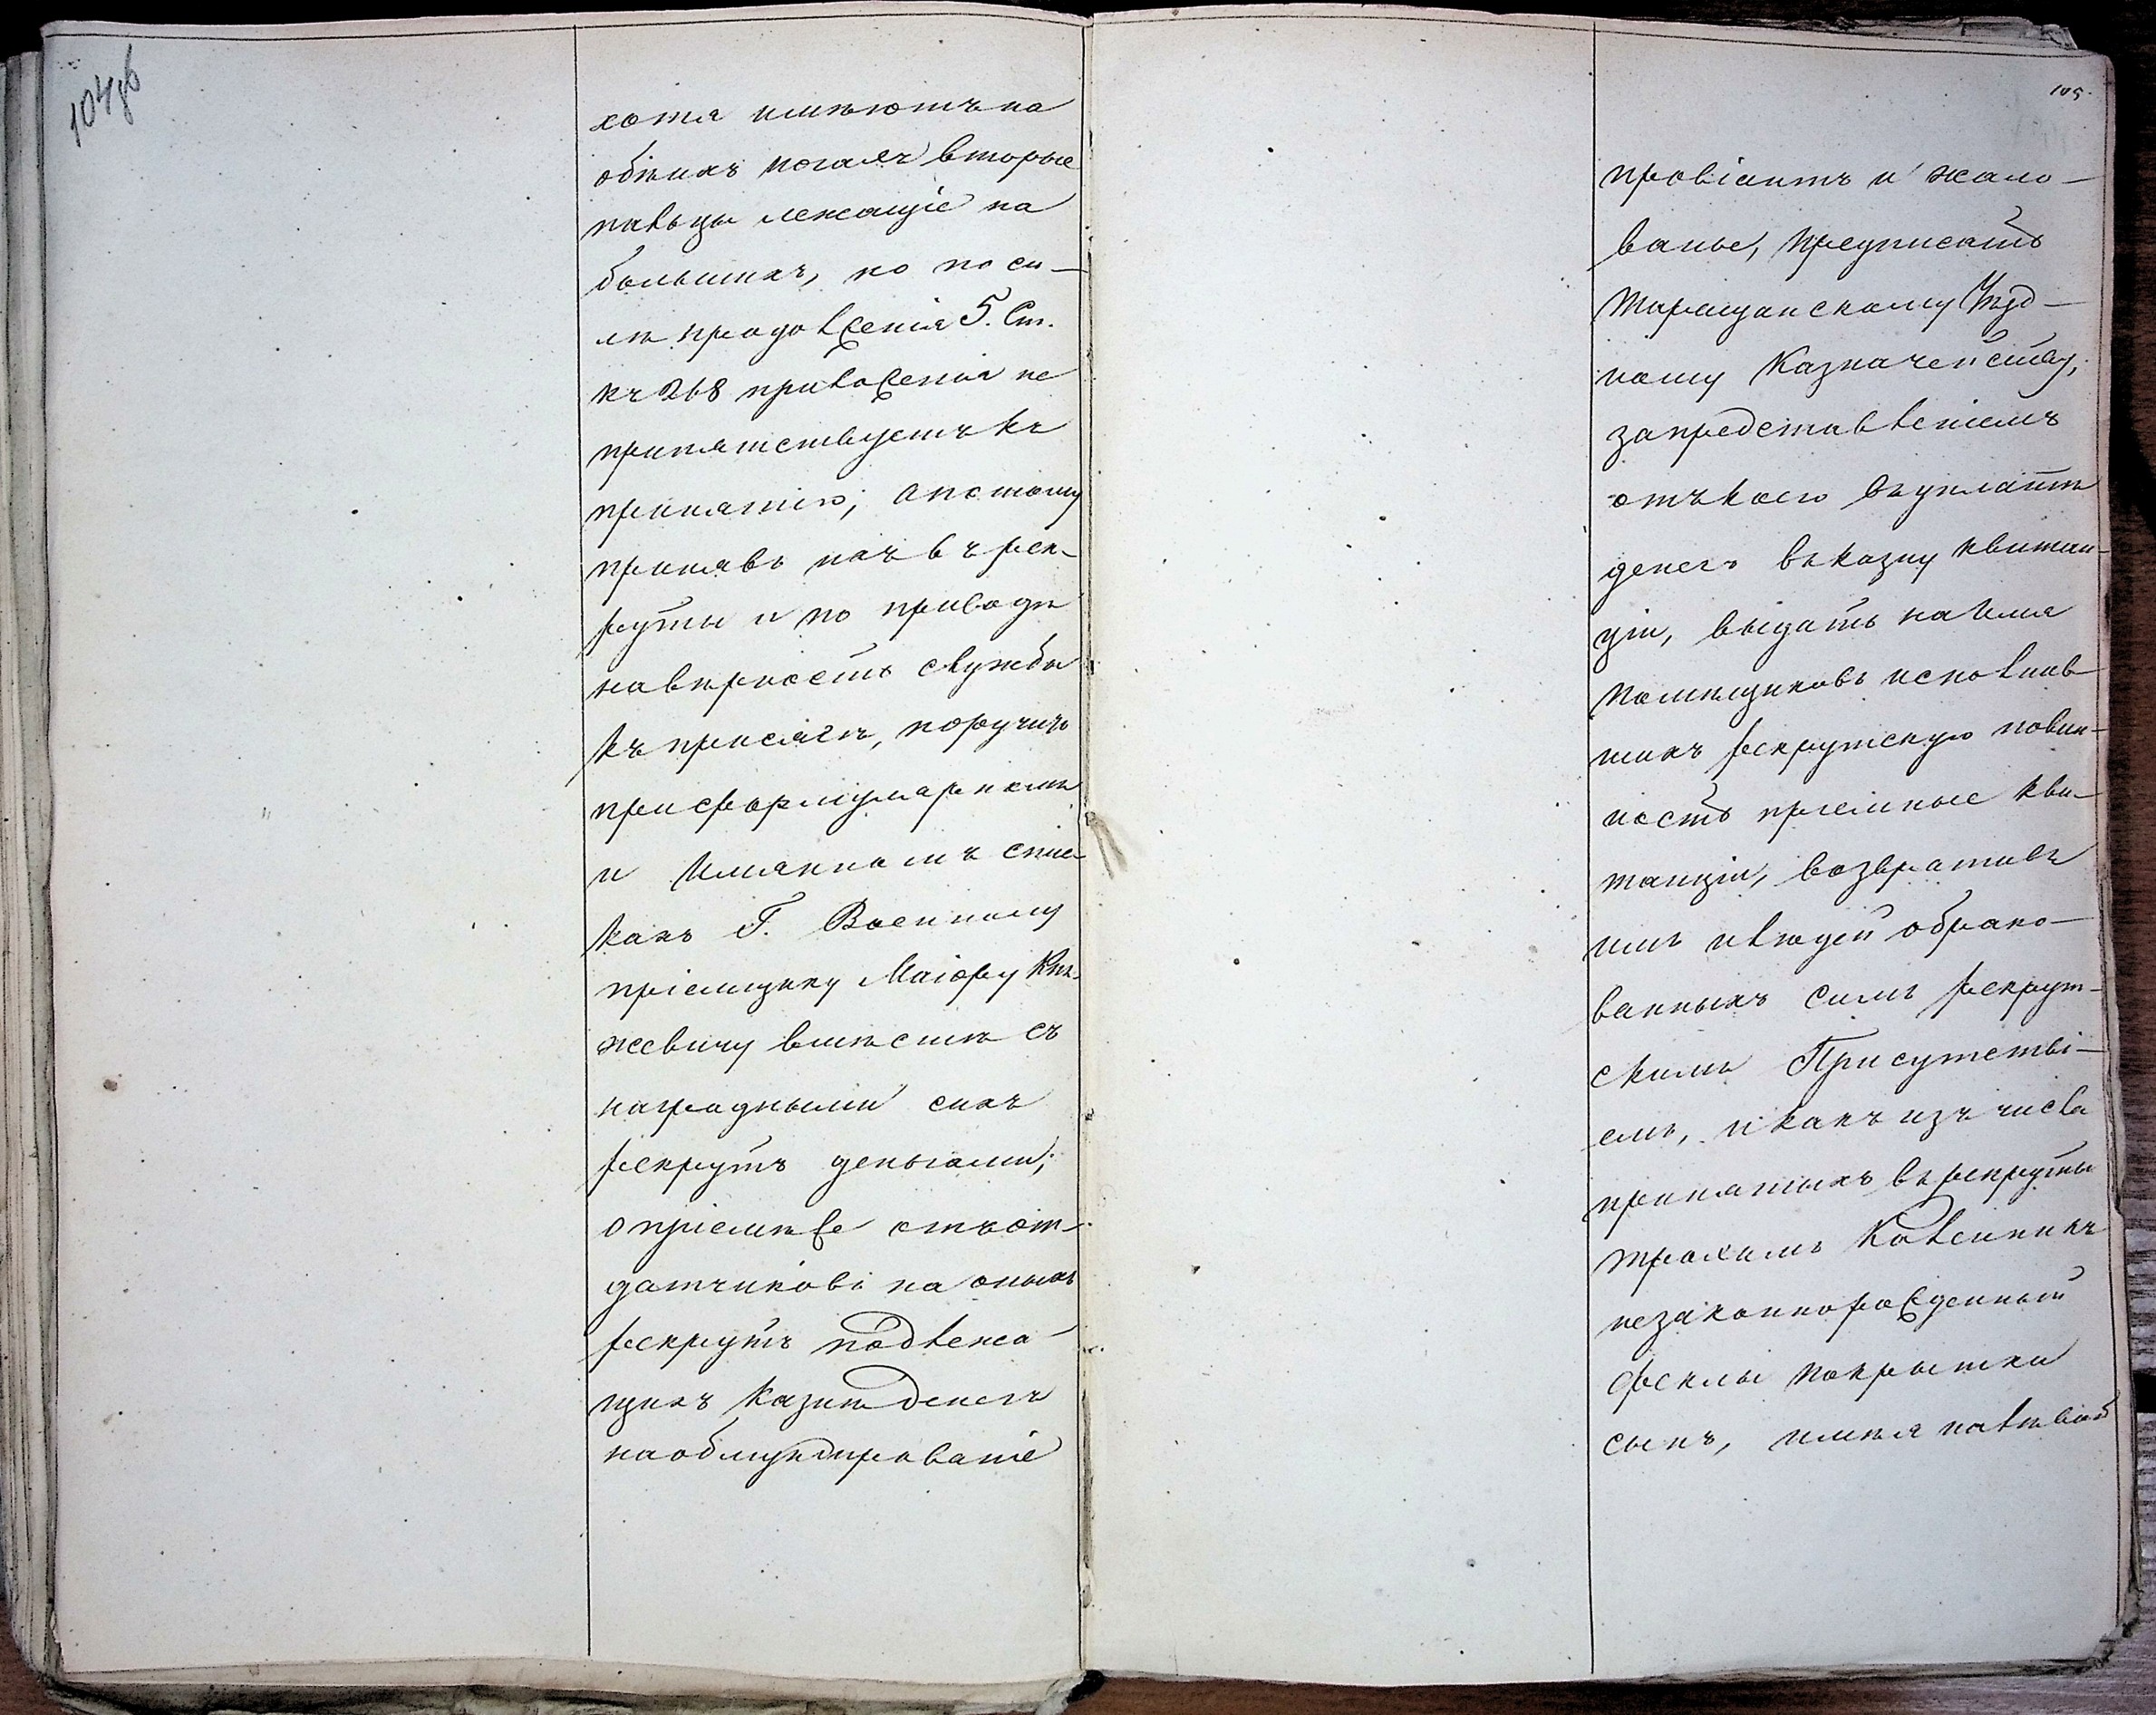 104об
хотя имѣютъ на
обѣихъ ногахъ вторые
пальцы лежащіе на
большихъ, но по си-
лѣ продолженія 5. Ст.
къ 268 приложенія не
припятствуетъ къ
принятію; а потому
принявъ ихъ въ рек-
руты и по приводѣ
на вѣрность службы
къ присягѣ, поручить
при формулярномъ
и имянномъ спис-
кахъ Г. Военному
пріемщику Маіору Кня-
жевичу вмѣстѣ съ
наградными сихъ
рекрутъ деньгами;
о пріемѣ же отъ от-
датчиковъ на оныхъ
рекрутъ подлежа-
щихъ казнѣ денегъ
на обмундированіе
105.
провіантъ и жало-
ванье, предписать
Таращанскому Уѣзд-
ному Казначейству,
за представленіемъ
отъ коего въ уплатѣ
денегъ въ казну квитан-
ціи, выдать на имя
помѣщиковъ исполнив-
шихъ рекрутскую повин-
ность пріемные кви-
танціи, возвративъ
имъ и людей обрако-
ванныхъ симъ рекрут-
скимъ Присутстві-
емъ, и какъ изъ числа
принятыхъ въ рекруты
Трохимъ
незаконнорожденный
Феклы покрытки
сынъ, имѣя на лѣвой